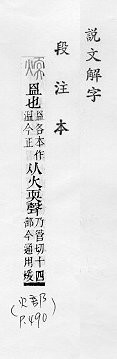 說文解字
段注本
煗 𥁕也𥁕各本作溫今正从火耎聲乃管切十四部今通用煖
(火部)
P.490